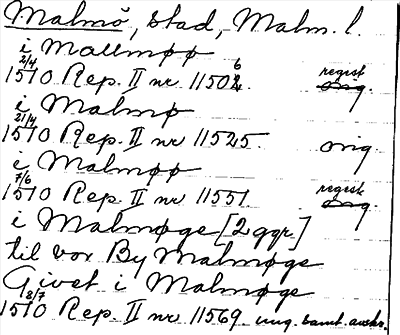 Malmö, stad, Malm. l.
i Mallmøø
2/4 1510 Rep. II nr 11506. regest
i Malmø
21/4 1510 Rep. II nr 11525. orig.
i Malmøø
7/6 1510 Rep. II nr 11551 regest
i Malmøge [2 ggr.]
til vor By Malmøge
Givet i Malmøge
8/7 1510 Rep. II nr 11569. ung. samt. avskr.